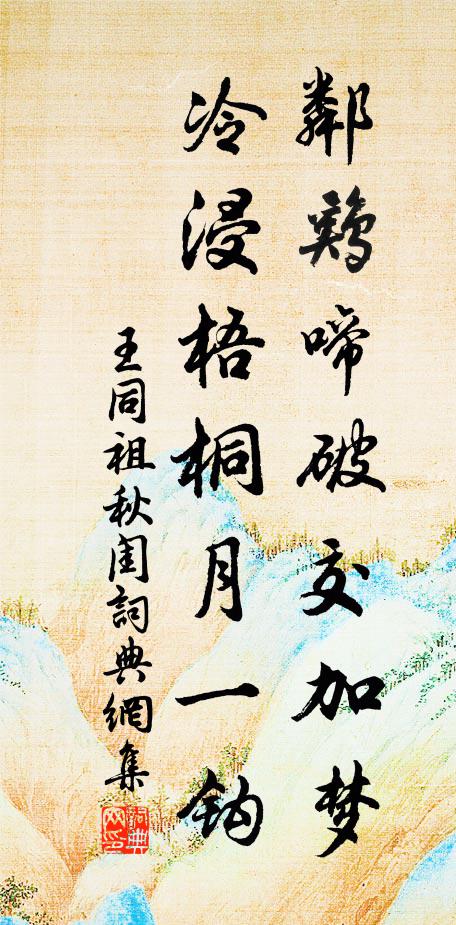 鄰鷄啼破交加梦
冷浸梧桐月一鈎
王同祖秋闺詞典網集
詞典網印